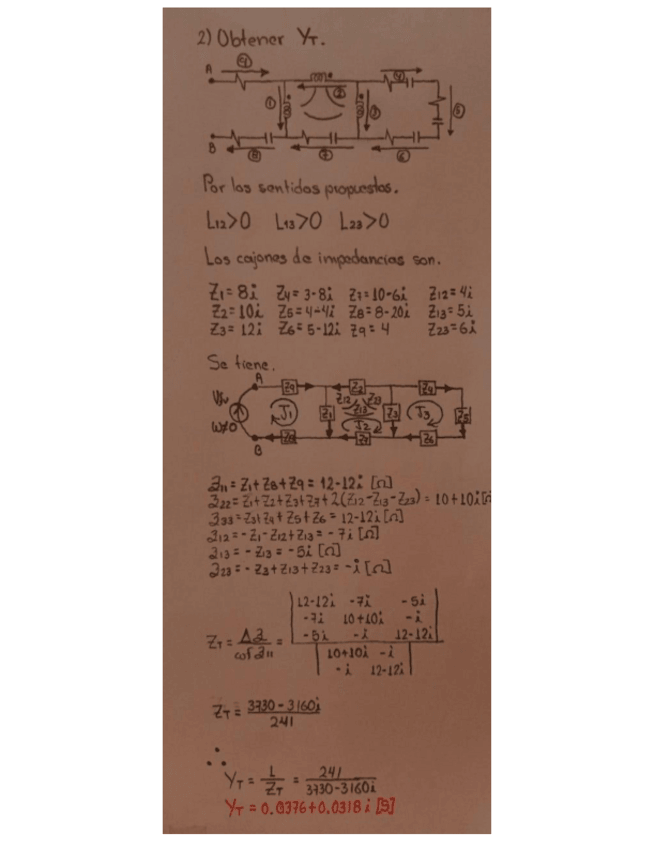 2) Obtener YT.
A
④
②
④
①
③
⑤
B
⑧
⑦
⑥
Por los sentidos propuestos.
L12>0 L13>0 L23>0
Los cajones de impedancias son.
Z1= 8i Z4= 3-8i Z7= 10-6i Z12= 4i
Z2= 10i Z5= 4-4i Z8= 8-20i Z13= 5i
Z3= 12i Z6= 5-12i Z9= 4 Z23= 6i
Se tiene.
A
Z9 Z2 Z4
W≠0 J1 Z1 Z12 Z13 Z23 Z3 J3 Z5
J2
Z8 Z7 Z6
B
𝟹11= Z1+Z8+Z9= 12-12i [Ω]
𝟹22= Z1+Z2+Z3+Z7+2(Z12-Z13-Z23) = 10+10i[Ω
𝟹33= Z3+Z4+Z5+Z6= 12-12i[Ω]
𝟹12= -Z1-Z12+Z13= -7i [Ω]
𝟹13= -Z13= -5i [Ω]
𝟹23= -Z3+Z13+Z23= -i [Ω]
12-12i -7i -5i
-7i 10+10i -i
-5i -i 12-12i
ZT= Δ𝟹 / cof 𝟹11 =
10+10i -i
-i 12-12i
ZT= 3730-3160i / 241
∴
YT= 1/ZT = 241 / 3730-3160i
YT= 0.0376+0.0318i [S]